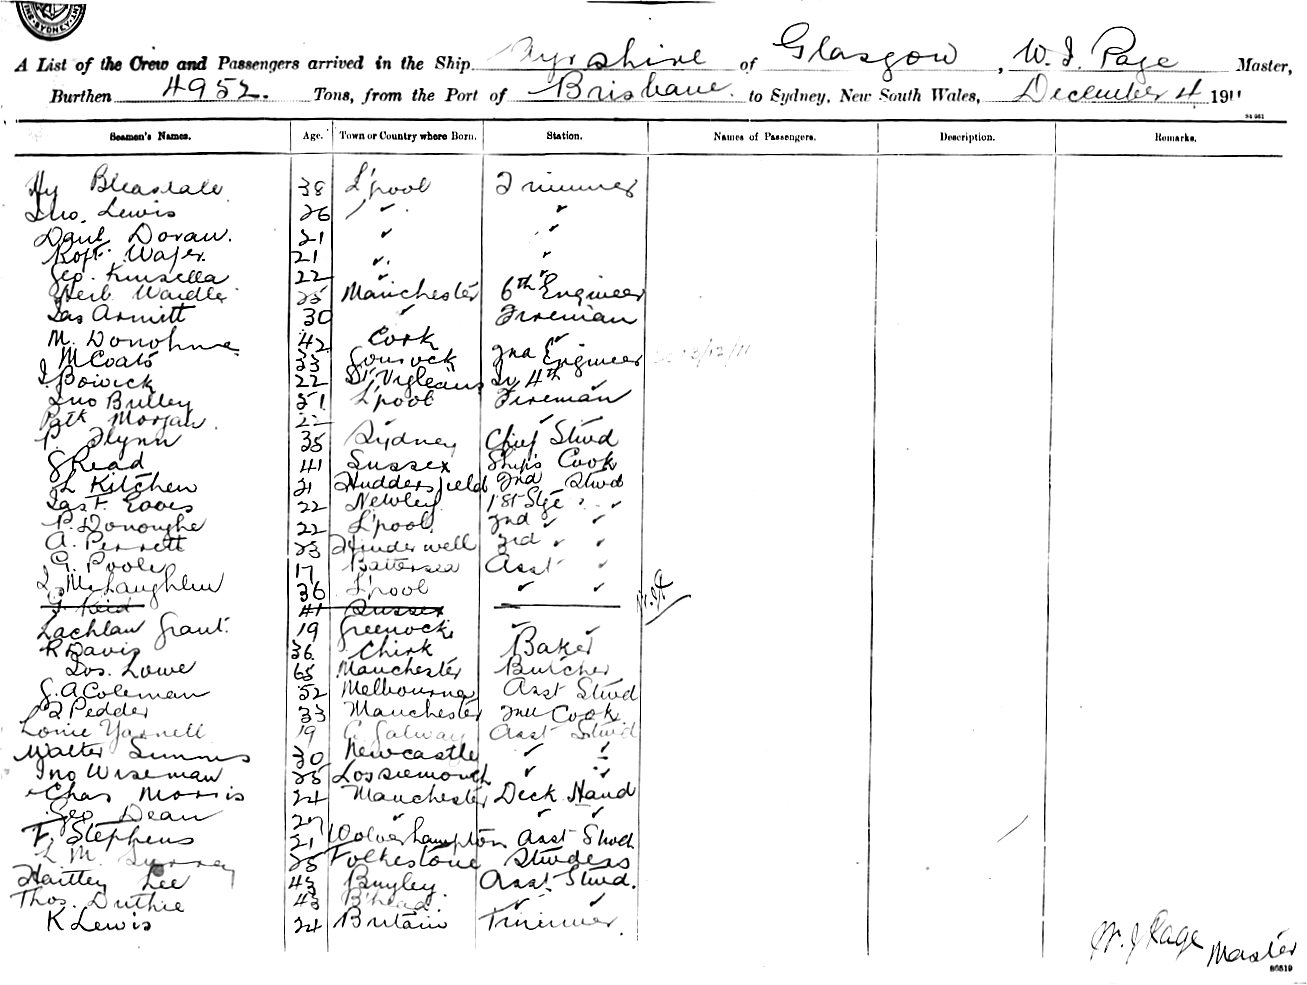 INS. SYDNEY. INT
A List of the Crew and Passengers arrived in the Ship Ayrshire of Glasgow, W. J. Page Master,
Burthen 4952. Tons, from the Port of Brisbane. to Sydney, New South Wales, December 4 1911
Seamen's Names. Age. Town or Country where Born. Station. Names of Passengers. Description. Remarks.
Hy Bleasdale 38 L'pool Trimmer
Tho. Lewis 26 " ✓ ✓
Danl Doran. 21 ✓ ✓
Robt Wafer. 21 ✓ ✓
Geo. Kinsella 22 ✓ ✓
Herb Wardle 25 Manchester 6th Engineer
Jas Armitt 30 ✓ Fireman
M. Donohue 42 Cork ✓
M Coats 33 Gourock 2nd Engineer
J. Bowick 22 St Vigleans Jr 4th ✓
Jno Bulley 51 L'pool Fireman
Patk Morgan 22 ✓ ✓ ✓
P. Flynn 35 Sydney Chief Stwd
G Read 41 Sussex Ship's Cook
L Kitchen 21 Huddersfield 2nd Stwd
Jas F. Eaves 22 Newley 1st Sge ✓
P. Donoughe 22 L'pool 2nd ✓ ✓
A. Perrett 23 Hinderwell 3rd ✓ ✓
G. Poole 17 Battersea Asst ✓
J. McLaughlin 36 L'pool ✓ ✓
G Reid 41 Sussex
Lachlan Grant. 19 Greenock ✓ ✓
R Davis 36 Chirk Baker
Jos. Lowe 65 Manchester Butcher
G. A Coleman 52 Melbourne Asst Stwd
J Pedder 33 Manchester 2nd Cook
Louie Yarnell 19 C. Galway Asst Stwd
Walter Simms 30 Newcastle ✓ ✓
Jno Wiseman 25 Lossiemouth ✓ ✓
Chas Morris 24 Manchester Deck Hand
Geo Dean 27 ✓ ✓ ✓
F. Stephens 21 Wolverhampton Asst Stwd
L M. 25 Folkestone Studess
Hartley Lee 43 Asst Stwd.
Thos. Duthie 43 B'head. ✓ ✓
K Lewis 24 Britain Trimmer.
13/12/11
W. J Page Master